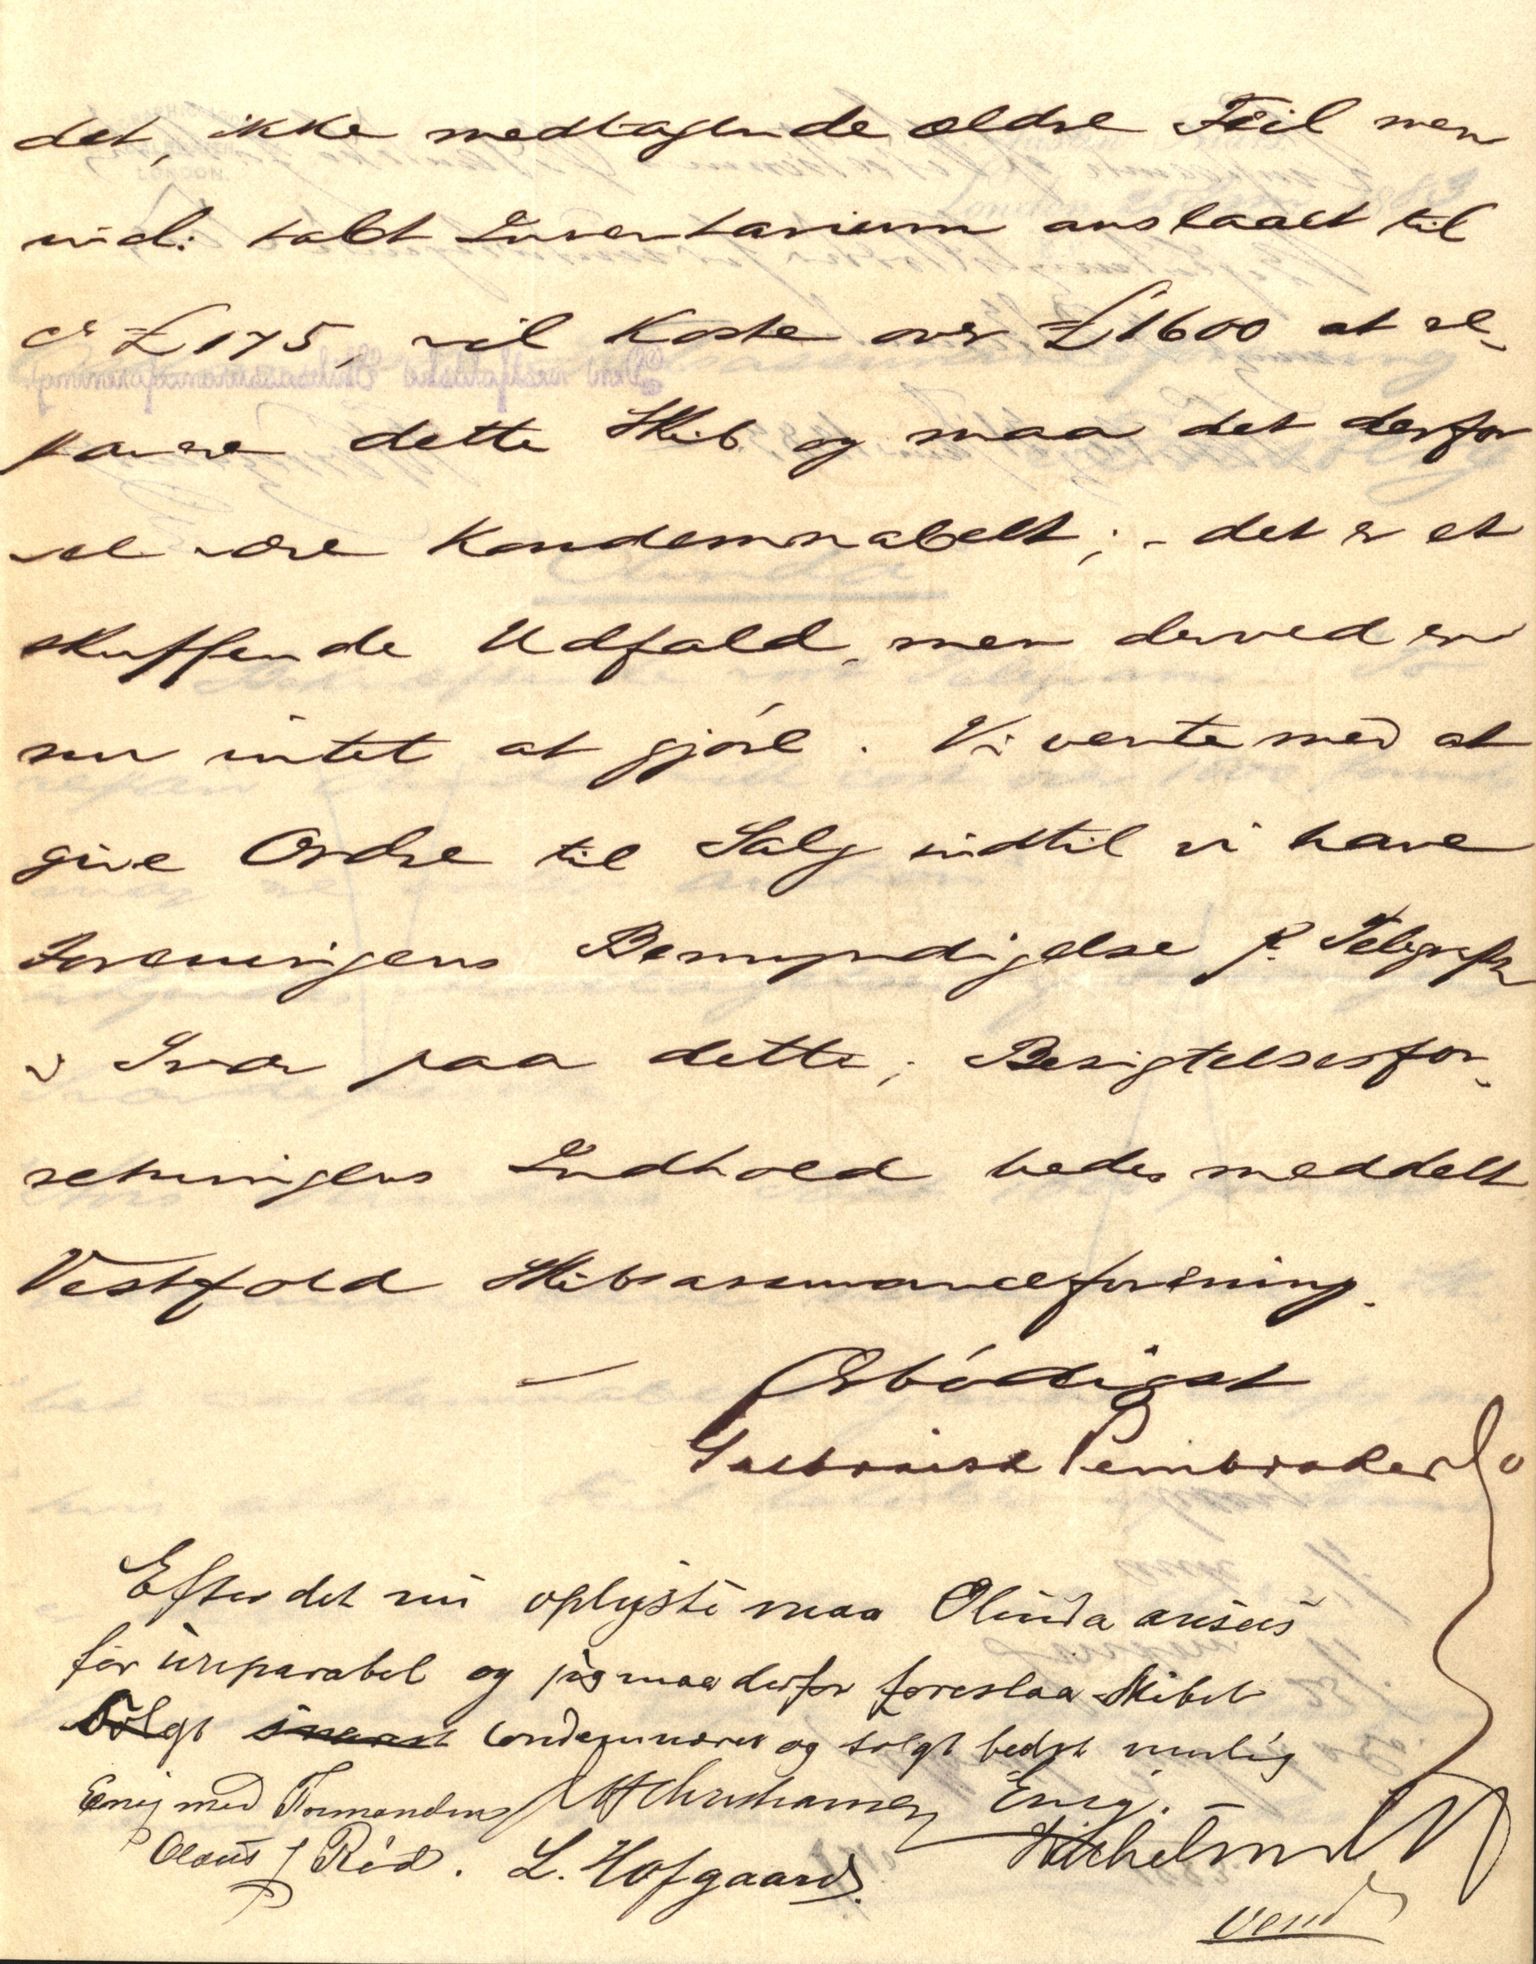 det, ikke medtagende ældre Feil men
incl: tabt Inventarium anslaaet til
cr £175, vil koste over £1600 at re-
parere dette Skib og maa det derfor
vel være Kondemnabelt; - det er et
skuffende Udfald, men derved er
nu intet at gjöre. Vi vente med at
give Ordre til Salg indtil vi have
Foreningens Bemyndigelse p. Telegraf
i Svar paa dette; Besigtelsesfor-
retningens Indhold bedes meddelt
Vestfold Skibsassuranceforening.
Ærbödigst
Pembroke
Efter det nu oplyste maa Olinda ansees
for ureparabel og jeg maa derfor foreslaa Skibet
Solgt condemneret og solgt bedst mulig
Enig med Formanden Enig.
Olaus Röd. L. Hofgaard.
vend